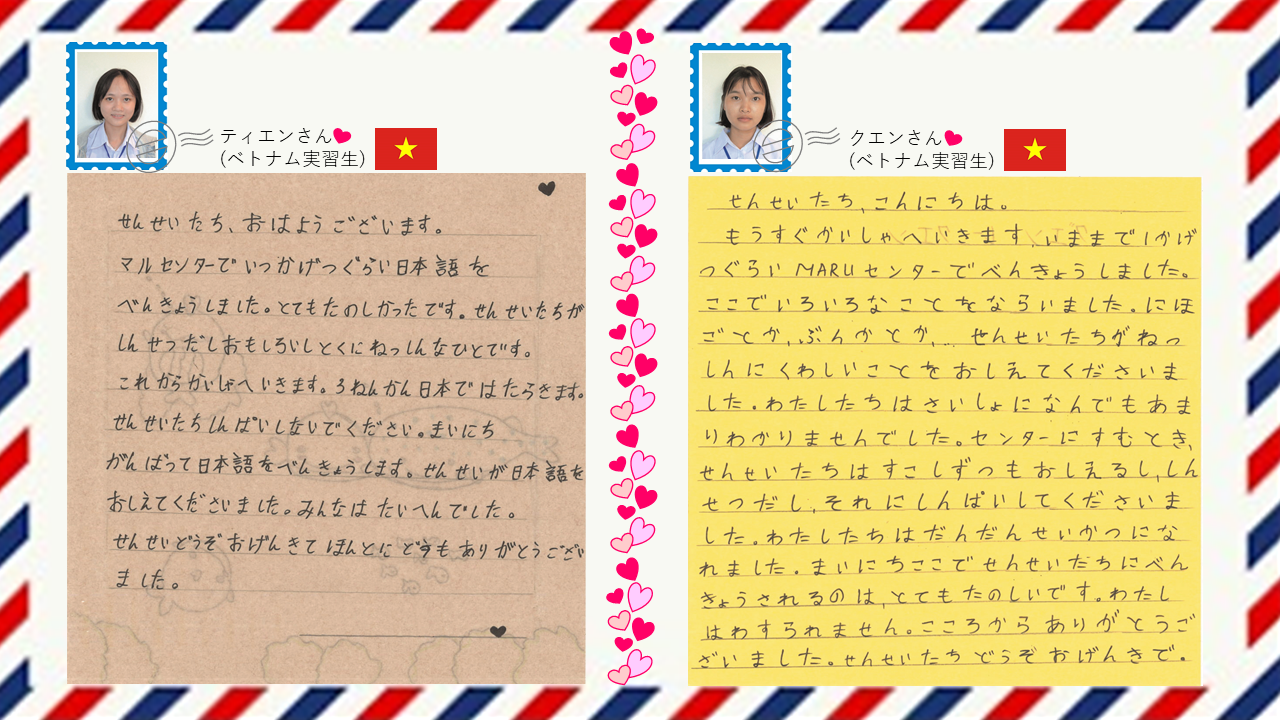 ティエンさん
(ベトナム実習生)
せんせいたち、おはようございます。
マルセンターでいっかげつぐらい日本語を
べんきょうしました。とてもたのしかったです。せんせいたちが
しんせつだしおもしろいしとくにねっしんなひとです。
これからかいしゃへいきます。3ねんかん日本ではたらきます。
せんせいたちしんぱいしないでください。まいにち
がんばって日本語をべんきょうします。せんせいが日本語を
おしえてくださいました。みんなはたいへんでした。
せんせいどうぞおげんきてほんとにどうもありがとうござい
ました。
クエンさん
(ベトナム実習生)
せんせいたち、こんにちは。
もうすぐかいしゃへいきます、いままで1かげ
つぐらいMARUセンターでべんきょうしました。
ここでいろいろなことをならいました。にほ
ごとか、ぶんかとか、… せんせいたちがねっ
しんにくわしいことをおしえてくださいま
した。わたしたちはさいしょになんでもあま
りわかりませんでした。センターにすむとき、
せんせいたちはすこしずつもおしえるし、しん
せつだし、それにしんぱいしてくださいま
した。わたしたちはだんだんせいかつにな
れました。まいにちここでせんせいたちにべん
きょうされるのは、とてもたのしいです。わたし
はわすられません。こころからありがとうご
ざいました。せんせいたちどうぞおげんきで。